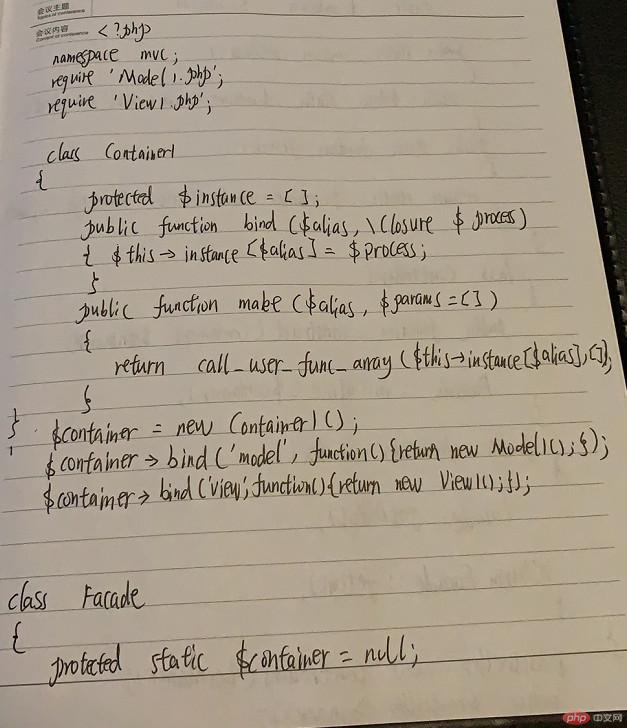 会议主题
Topics of conference
会议内容
Content of conference
<?php
namespace mvc;
require 'Model1.php';
require 'View1.php';
class Container1
{
protected $instance = [];
public function bind ($alias, \Closure $process)
{ $this→instance [$alias] = $process;
}
public function make ($alias, $params=[])
{
return call_user_func_array ($this→instance[$alias],[]);
}
}
$container = new Container1();
$container→bind ('model', function(){return new Model1();});
$container→bind ('view', function(){return new View1();});
class Facade
{
protected static $container = null;
php 中文网